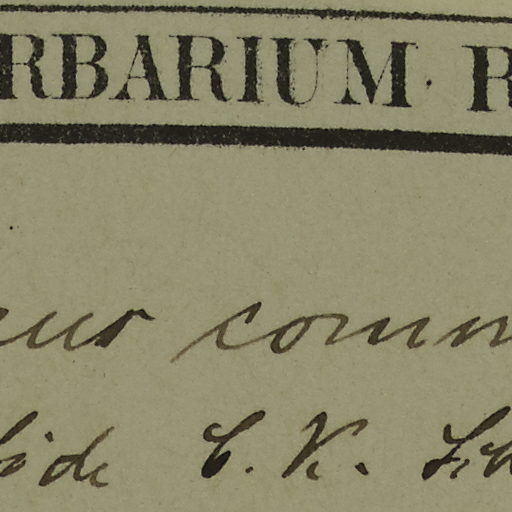 RBARIUM R
eus comm
side C. K.